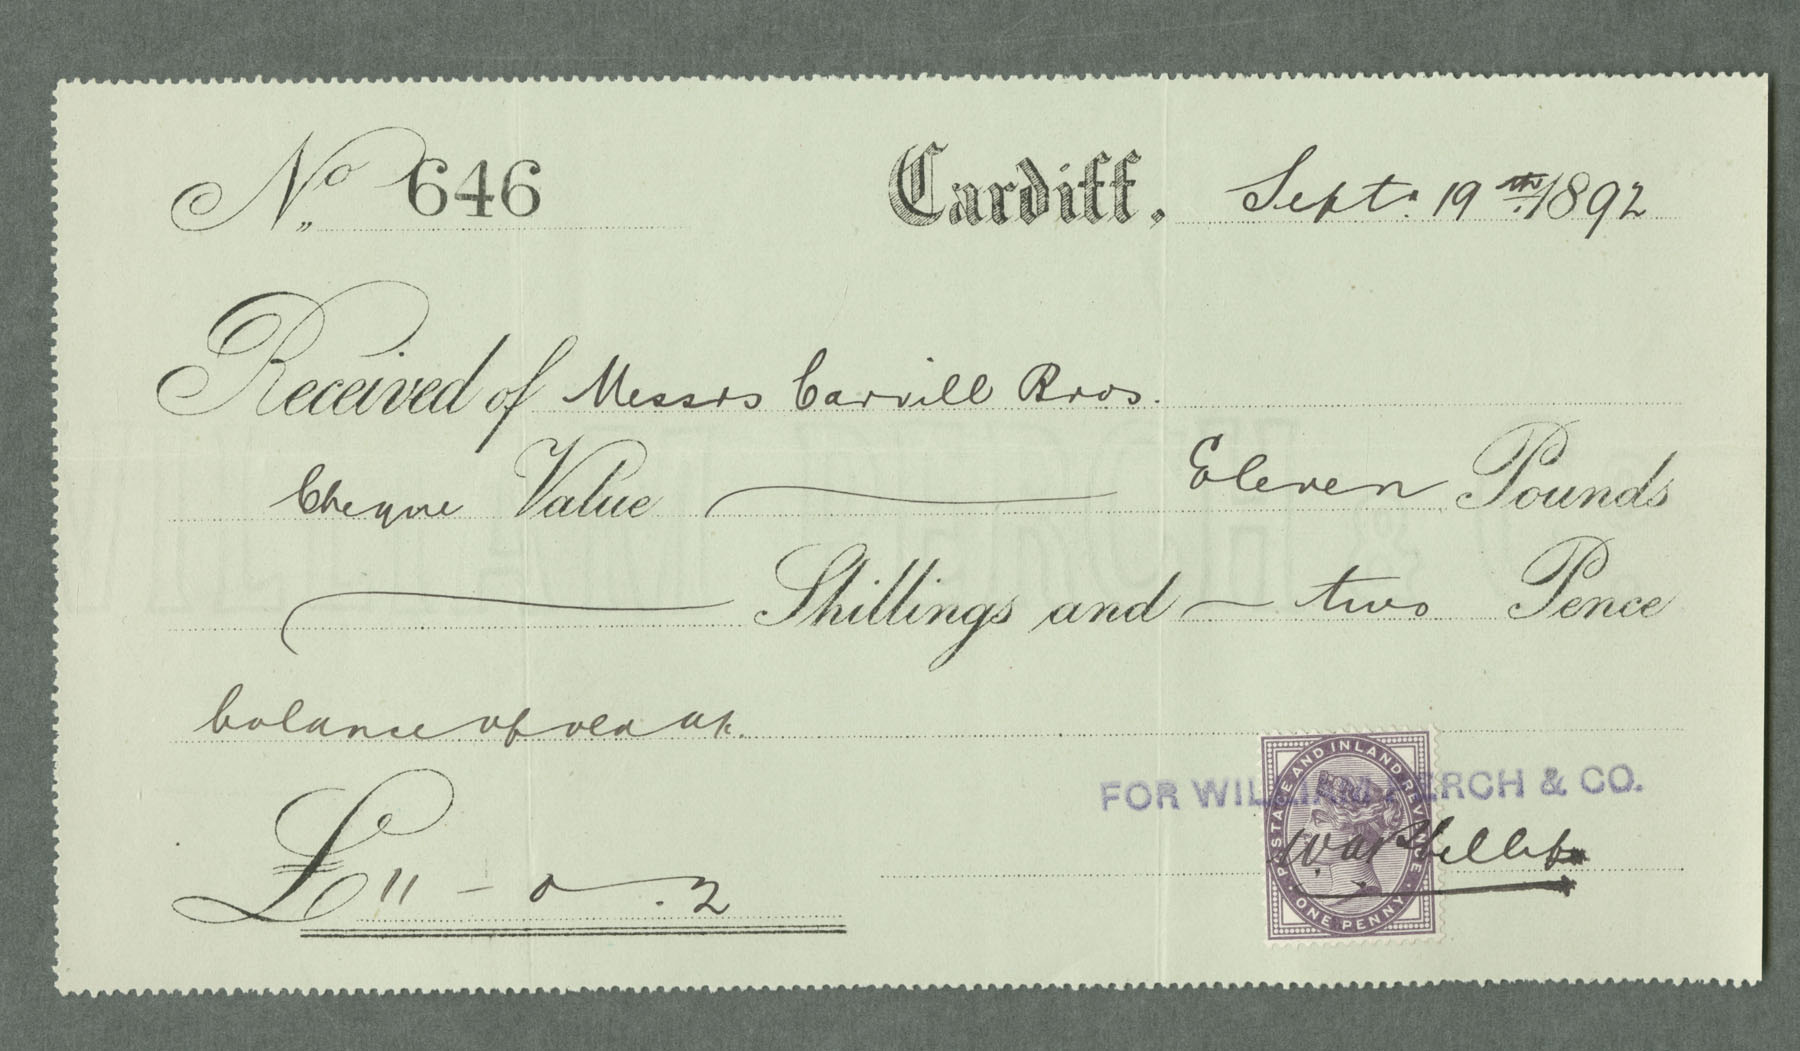 No. 646 Cardiff, Sept. 19th. 1892
Received of Messrs Carvill Bros.
Cheque Value Eleven Pounds
Shillings and two Pence
balance of old a/c.
FOR WILLIAM PERCH & CO.
POSTAGE AND INLAND REVENUE
W. A. Phillips
ONE PENNY
£ 11 - 0 . 2